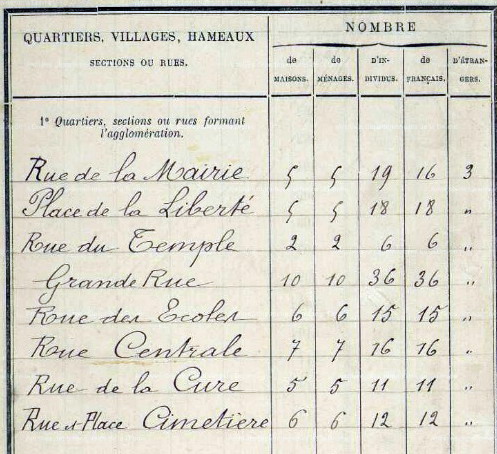 QUARTIERS, VILLAGES, HAMEAUX
SECTIONS OU RUES.
NOMBRE
de MAISONS.
de MÉNAGES.
D'IN-DIVIDUS.
de FRANÇAIS.
D'ÉTRAN-GERS.
1° Quartiers, sections ou rues formant
l'agglomération.
Rue de la Mairie 5 5 19 16 3
Place de la Liberté 5 5 18 18 "
Rue du Temple 2 2 6 6 "
Grande Rue 10 10 36 36 "
Rue des Ecoles 6 6 15 15 "
Rue Centrale 7 7 16 16 "
Rue de la Cure 5 5 11 11 "
Rue et Place Cimetiere 6 6 12 12 "